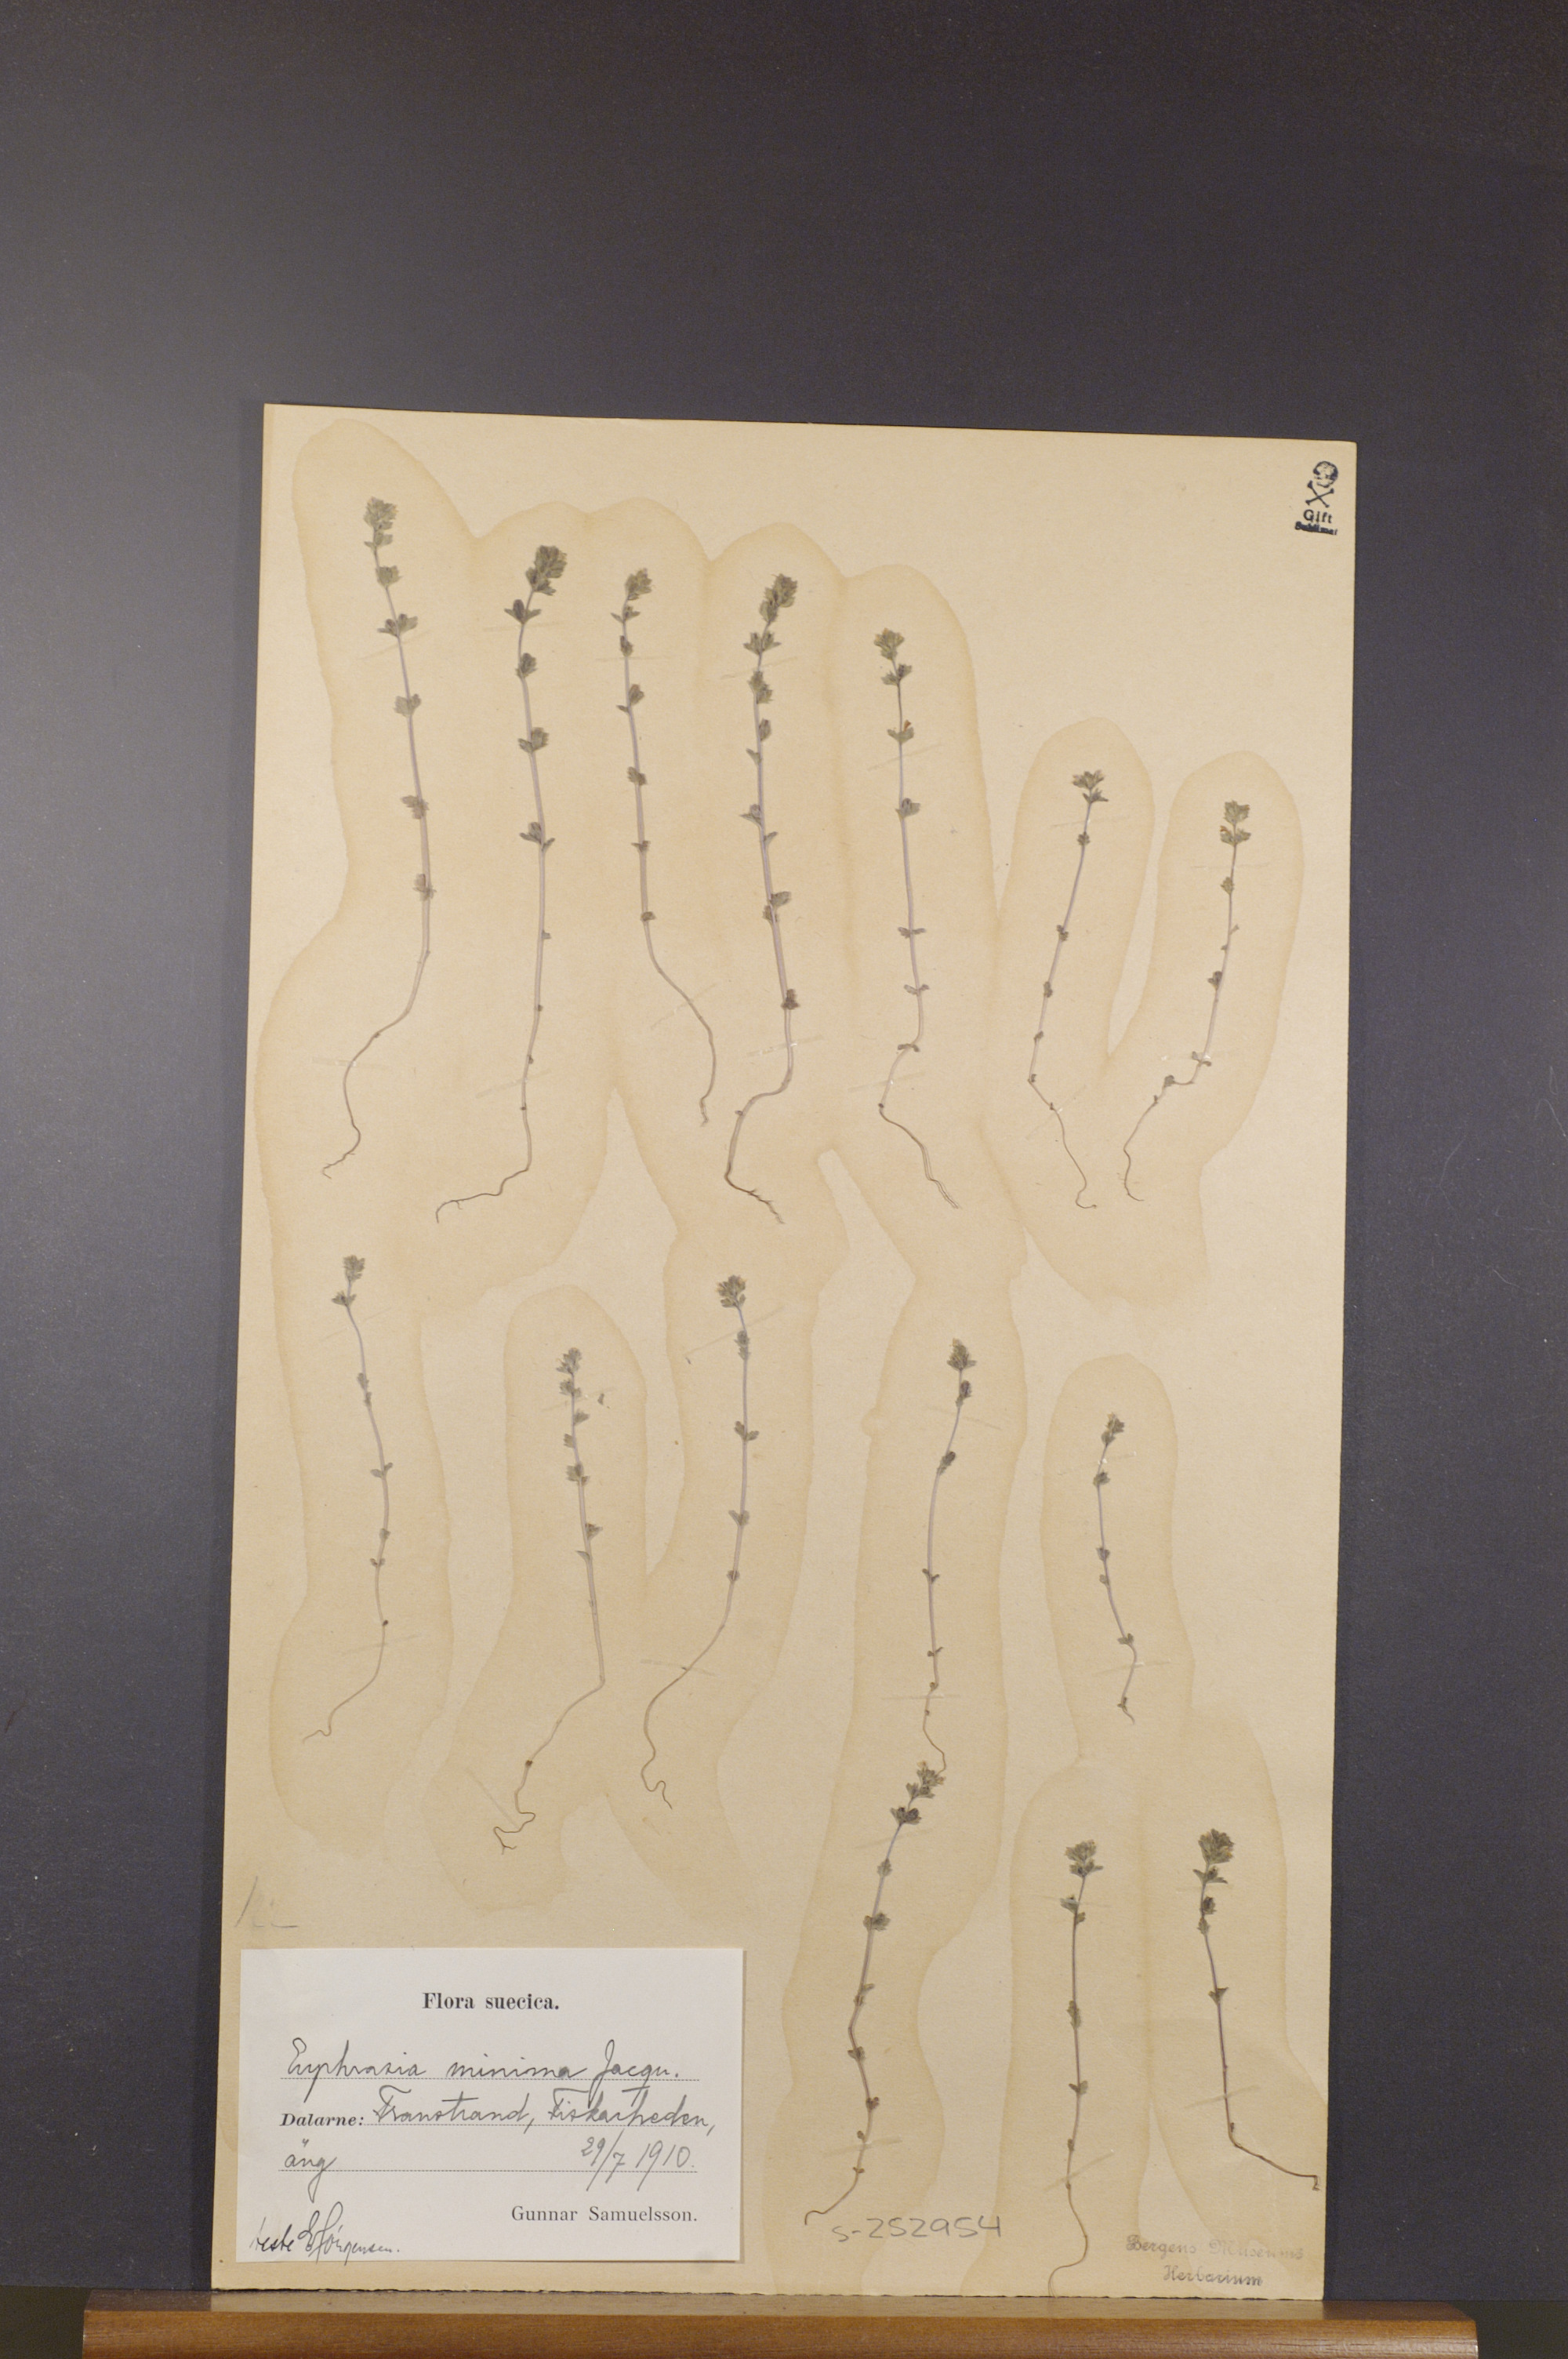 Gift
Sublimat
Flora suecica.
Euphrasia minima Jacqu.
Dalarne: Transtrand, Fiskarheden,
äng 29/7 1910.
Gunnar Samuelsson.
teste E Jörgensen.
S-252954
Bergens Museums
Herbarium